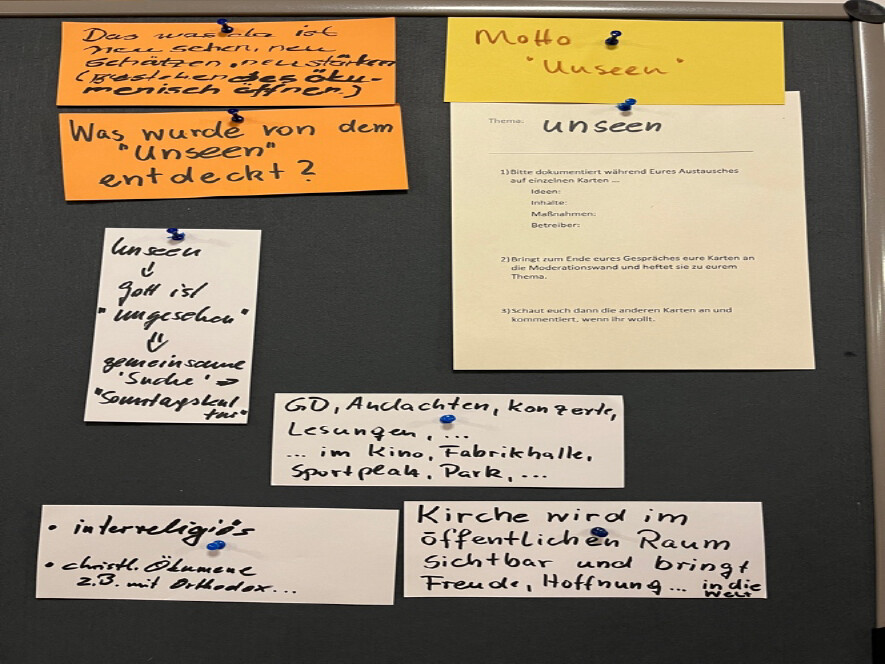 Das was da ist
neu sehen, neu
schätzen, neu stärken
(Bestehendes Öku-
menisch öffnen)
Was wurde von dem
"Unseen"
entdeckt?
Motto
"Unseen"
Thema: unseen
1) Bitte dokumentiert während Eures Austausches
auf einzelnen Karten ...
Ideen:
Inhalte:
Maßnahmen:
Betreiber:
2) Bringt zum Ende eures Gespräches eure Karten an
die Moderationswand und heftet sie zu eurem
Thema.
3) Schaut euch dann die anderen Karten an und
kommentiert, wenn ihr wollt.
Unseen
↓
Gott ist
"ungesehen"
⇓
gemeinsame
'Suche' ⇒
"Sonntagskul
tur"
GD, Andachten, Konzerte,
Lesungen, ...
... im Kino, Fabrikhalle,
Sportplatz, Park, ...
• interreligiös
• christl. Ökumene
z.B. mit Orthodox...
Kirche wird im
öffentlichen Raum
sichtbar und bringt
Freude, Hoffnung... in die
Welt